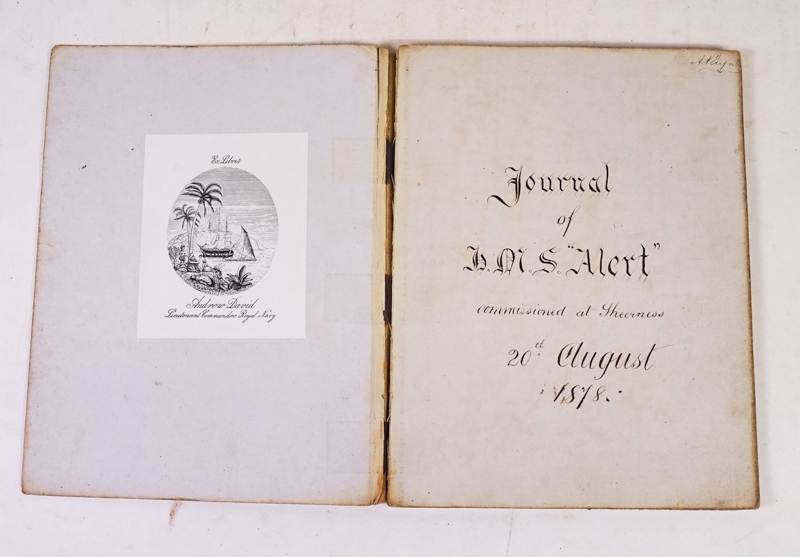 Ex Libris
Andrew David
Lieutenant Commander Royal Navy
Journal
of
H.M.S. "Alert"
commissioned at Sheerness
20th August
1878.